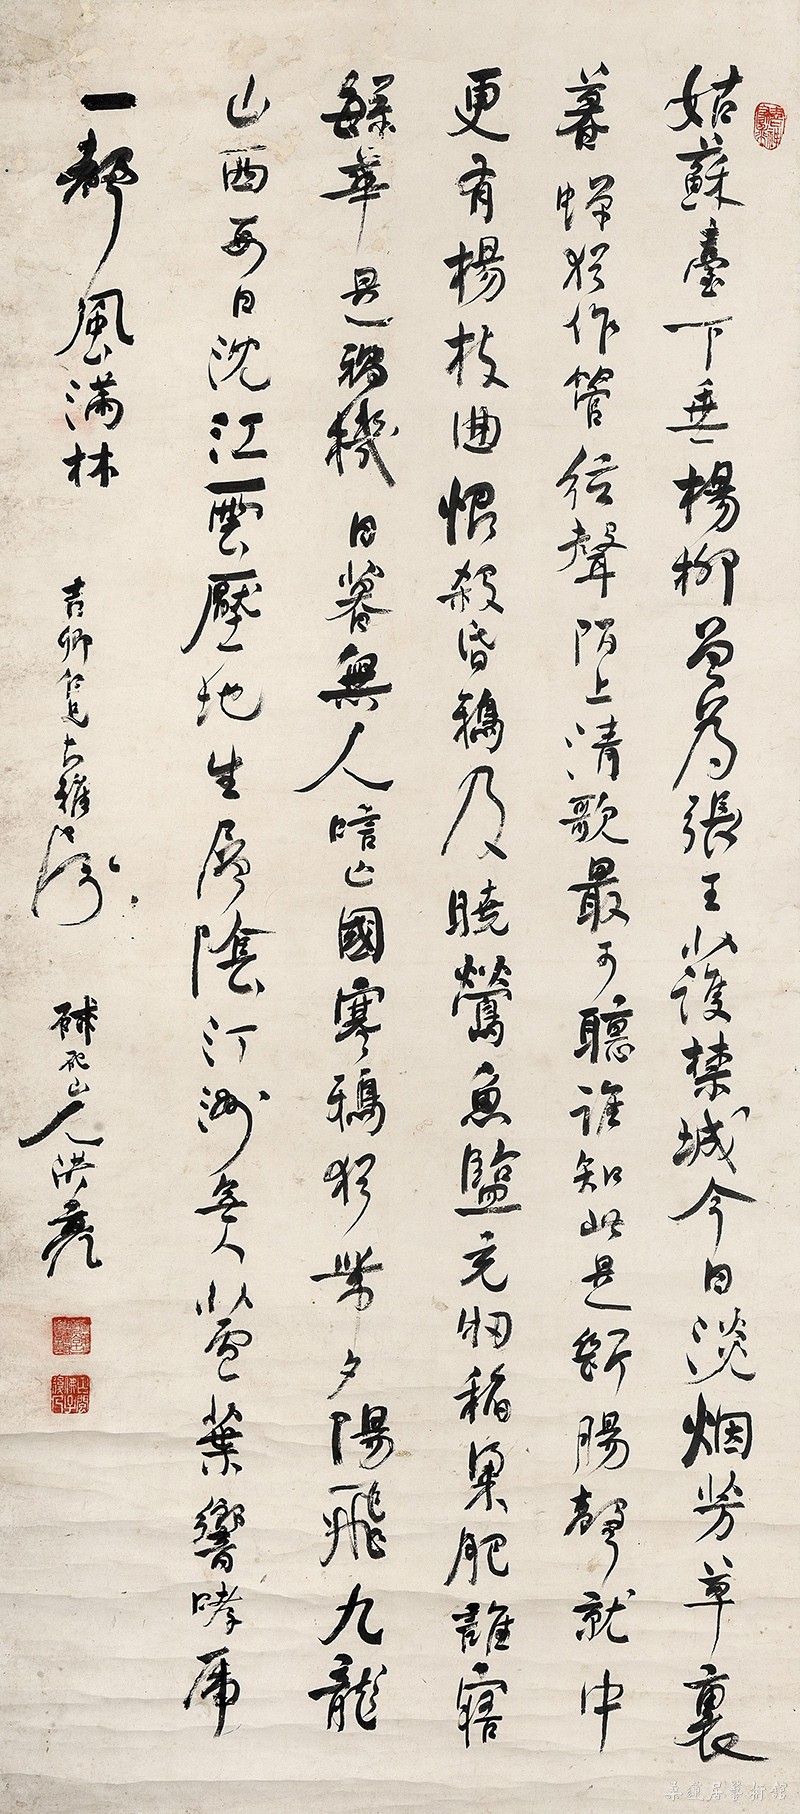 姑蘇臺下垂楊柳曾為張王護禁城今日淡烟芳草裏
暮蟬猶作管絃聲陌上清歌最可聽誰知此是斷腸聲就中
更有楊枝曲恨殺昏鴉及曉鶯魚鹽充牣稻粱肥誰寤
繁華是禍機日暮無人唁亡國寒鴉猶帶夕陽飛九龍
山西西日沈江雲壓地生層陰汀洲無人菰葉響哮虎
一聲風滿林
吉卿仁兄大雅
山人洪亮